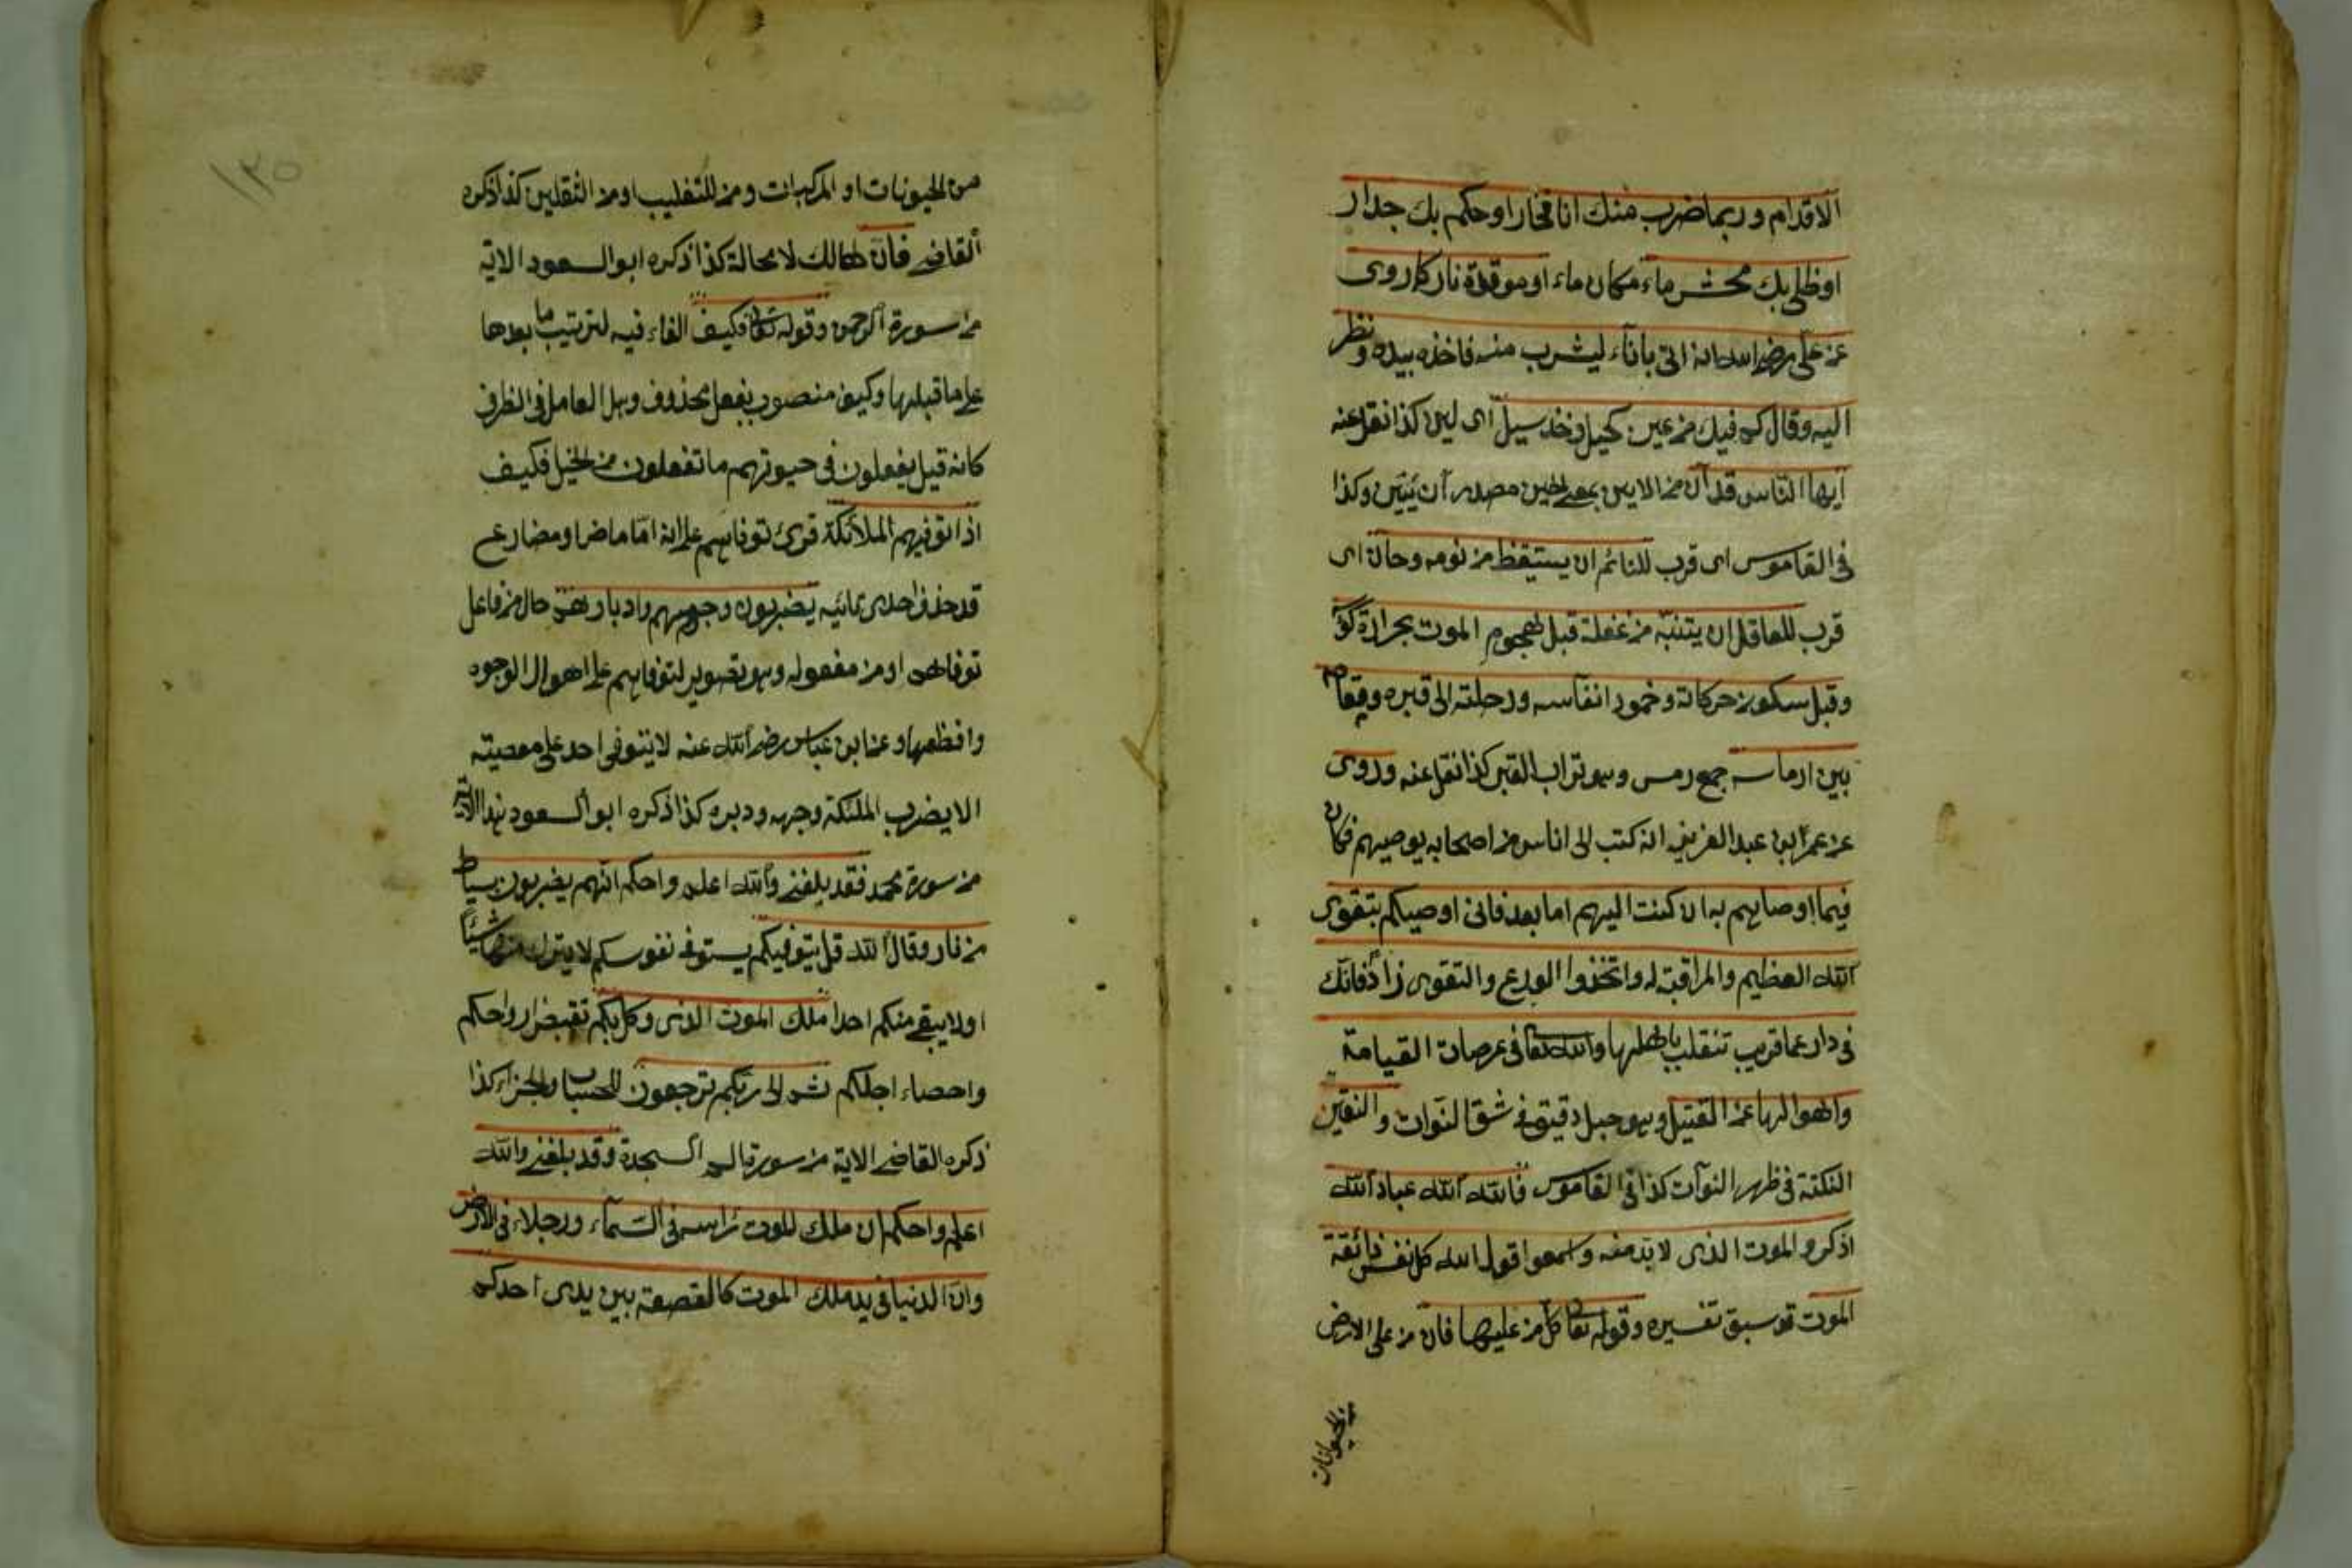 الاقدام وربما ضرب منك اناء فخار او حكم بك جدار
او طلى بك محش ماء مكان ماء او موقدة نار كما روى
عن على رضى الله انه اتى باناء ليشرب منه فاخذه بيده ونظر
اليه وقال كم فيك من عين كحيل وخد سيل اى لين كذا نقل عنه
ايها الناس قد آن من الاين بمعنى الحين مصدر آن يئين وكذا
فى القاموس اى قرب للنائم ان يستيقظ من نومه وحان اى
قرب للعاقل ان يتنبه من غفلة قبل هجوم الموت بحرارة
وقبل سكون حركاته وخمود انفاسه ورحلته الى قبره ومقامه
بين ارماسه جمع رمس وهو تراب القبر كذا نقل عنه وروى
عن عمر ابن عبد العزيز انه كتب الى اناس من اصحابه يوصيهم فكان
فيما اوصاهم به ان كتب اليهم اما بعد فانى اوصيكم بتقوى
الله العظيم والمراقبة له واتخذوا الورع والتقوى زادا فانك
فى دار عما قريب تنقلب باهلها والله تعا فى عرصات القيامة
واهوالها عن الفتيل وهو حبل دقيق فى شق النوات والنقير
النكتة فى ظهر النوات كذا فى القاموس فالله الله عباد الله
اذكروا الموت الذى لا بد منه واسمعوا قول الله كل نفس ذائقة
الموت قد سبق تفسيره وقوله تعا كل من عليها فان من على الارض
من الحيوانات
١٣٥
من الحيونات او المركبات ومن للتغليب او من الثقلين كذا ذكره
القاضى فان هالك لا محالة كذا ذكره ابو السعود الاية
من سورة الرحمن وقوله تعا فكيف الفاء فيه لترتيب ما بعدها
على ما قبلها وكيف منصوب بفعل محذوف وهو العامل فى الظرف
كانه قيل يفعلون فى حيوتهم ما تفعلون من الحيل فكيف
اذا توفيهم الملائكة قرئ توفاهم على انه اما ماض او مضارع
قد حذف احدى تائيه يضربون وجوههم وادبارهم حال من فاعل
توفاهم او من مفعوله وهو تصوير لتوفاهم على اهوال الوجوه
وافظعها وعن ابن عباس رضى الله عنه لا يتوفى احد على معصيته
الا يضرب الملئكة وجهه ودبره كذا ذكره ابو السعود هذا الاية
من سورة محمد فقد بلغنى والله اعلم واحكم انهم يضربون بسياط
من نار وقال الله قل يتوفيكم يستوفى نفوسكم لا يترك منها شيئا
او لا يبقى منكم احدا ملك الموت الذى وكل بكم تقبض ارواحكم
واحصاء اجلكم ثم الى ربكم ترجعون للحساب والجزاء كذا
ذكره القاضى الاية من سورة الم السجدة وقد بلغنى والله
اعلم واحكم ان ملك الموت راسه فى السماء ورجلاه فى الارض
وان الدنيا فى يد ملك الموت كالقصعة بين يدى احدكم